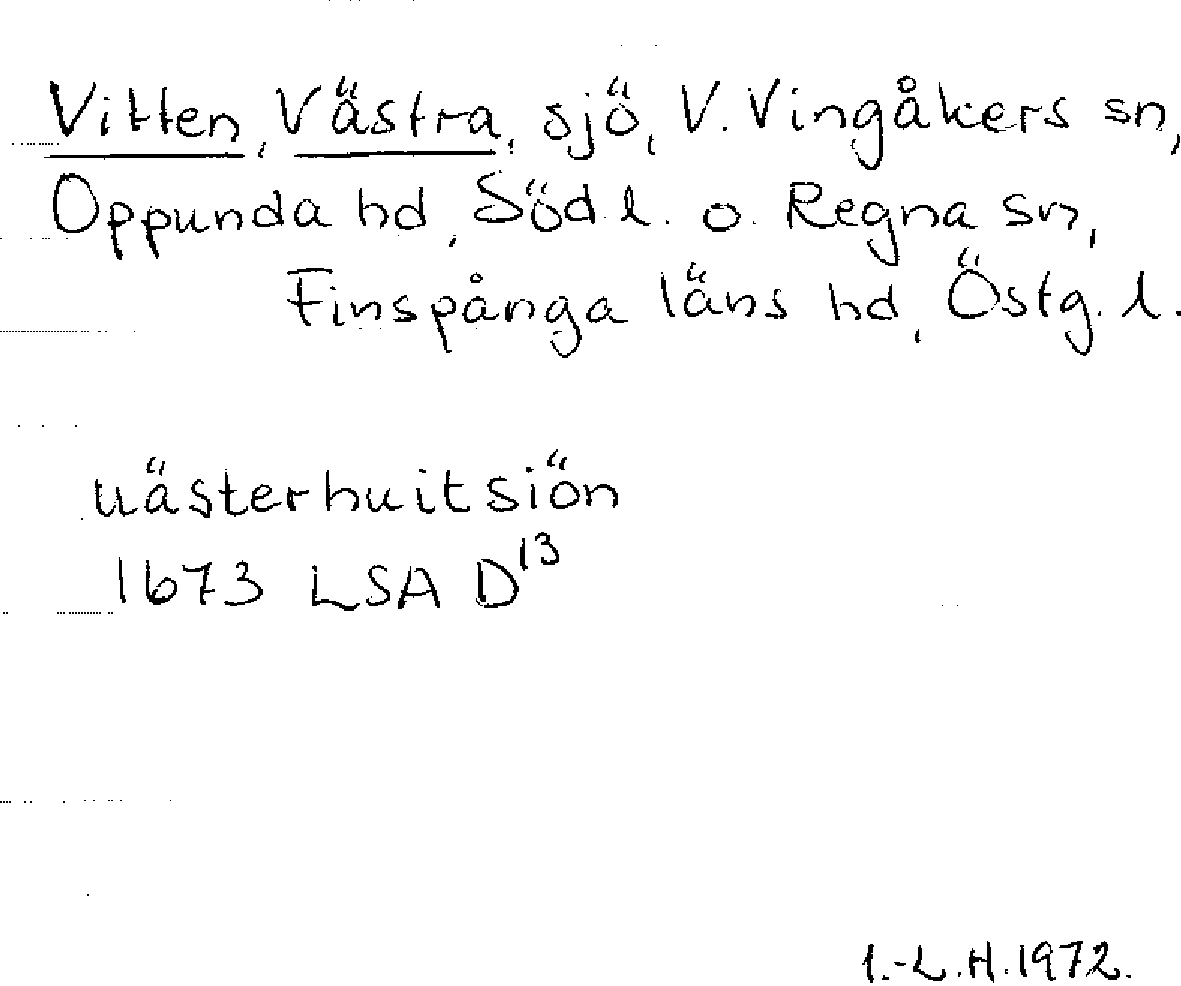 Vitten, Västra, sjö, V. Vingåkers sn,
Oppunda hd, Söd. l. o. Regna sn,
Finspånga läns hd, Östg. l.
uästerhuitsiön
1673 LSA D¹³
I.-L.H. 1972.